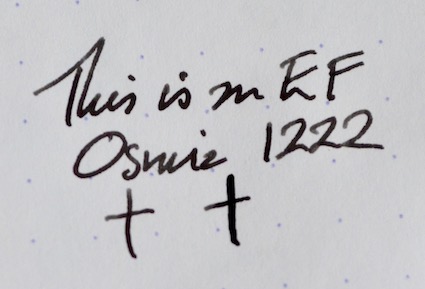 This is an EF
Osmia 1222